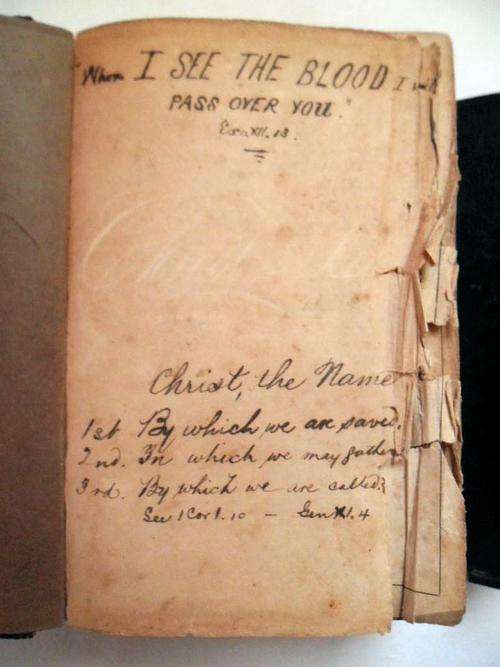 "When I SEE THE BLOOD I will
PASS OVER YOU."
Exo XII. 13.
Christ, the Name
1st By which we are saved.
2nd. In which we may gather
3rd. By which we are called?
See 1 Cor 1. 10 — Gen XI. 4